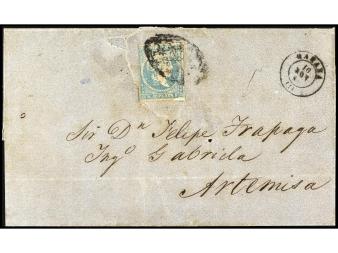 HABANA
10
NOV
Sir Dn Felipe Trapaga
Ingo Gabriela
Artemisa